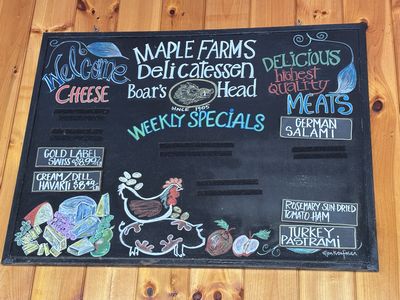 Welcome
MAPLE FARMS
DELicATESSEN
BOAR'S HEAD
SINCE 1905
WEEKLY SPECIALS
CHEESE
GOLD LABEL
SWISS
CREAM/DILL
HAVARTI
DELICIOUS
highest
QUALITY
MEATS
GERMAN
SALAMI
ROSEMARY SUN DRIED
TOMATO HAM
TURKEY
PASTRAMI